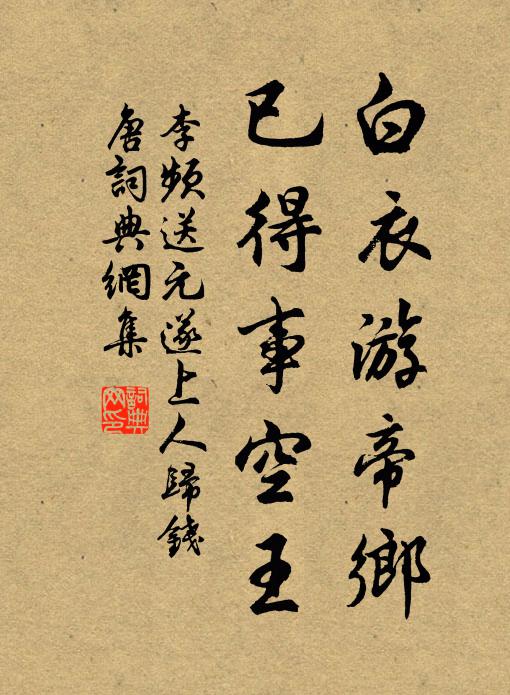 白衣游帝鄉
已得事空王
李頻送元遂上人歸錢
唐詞典網集
詞典
網印